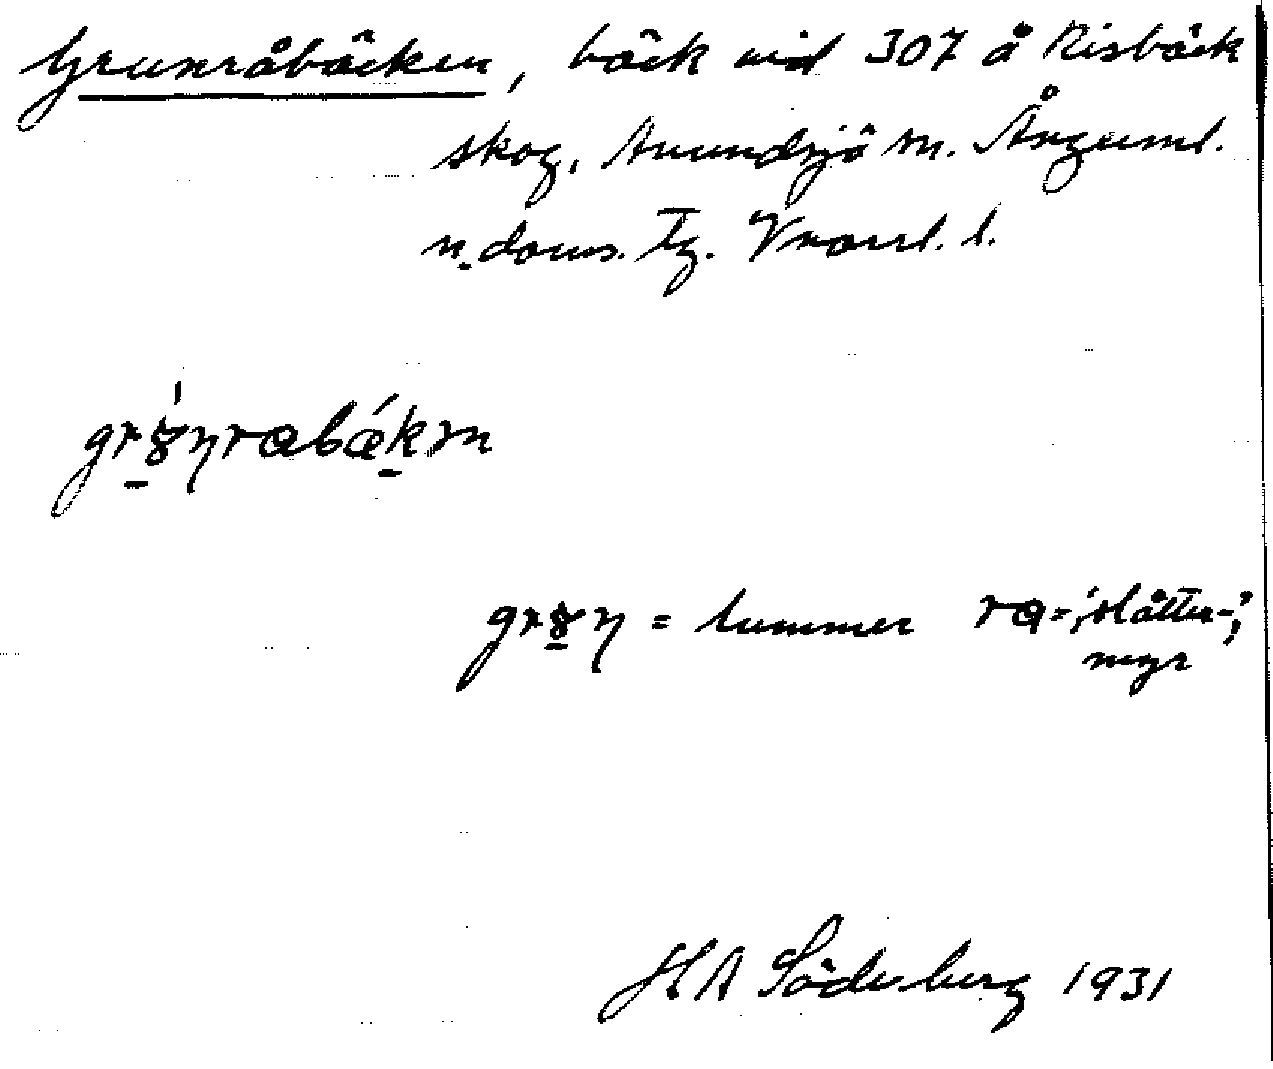 Grunråbäcken, bäck vid 307 å Risbäck
skog, Anundsjö sn. Ångerml.
n. doms. Tg. Vnorrl. l.
grɞŋrabækɪn
grɞŋ = lummer ra = 'slåtter-,
myr
HA Söderberg 1931